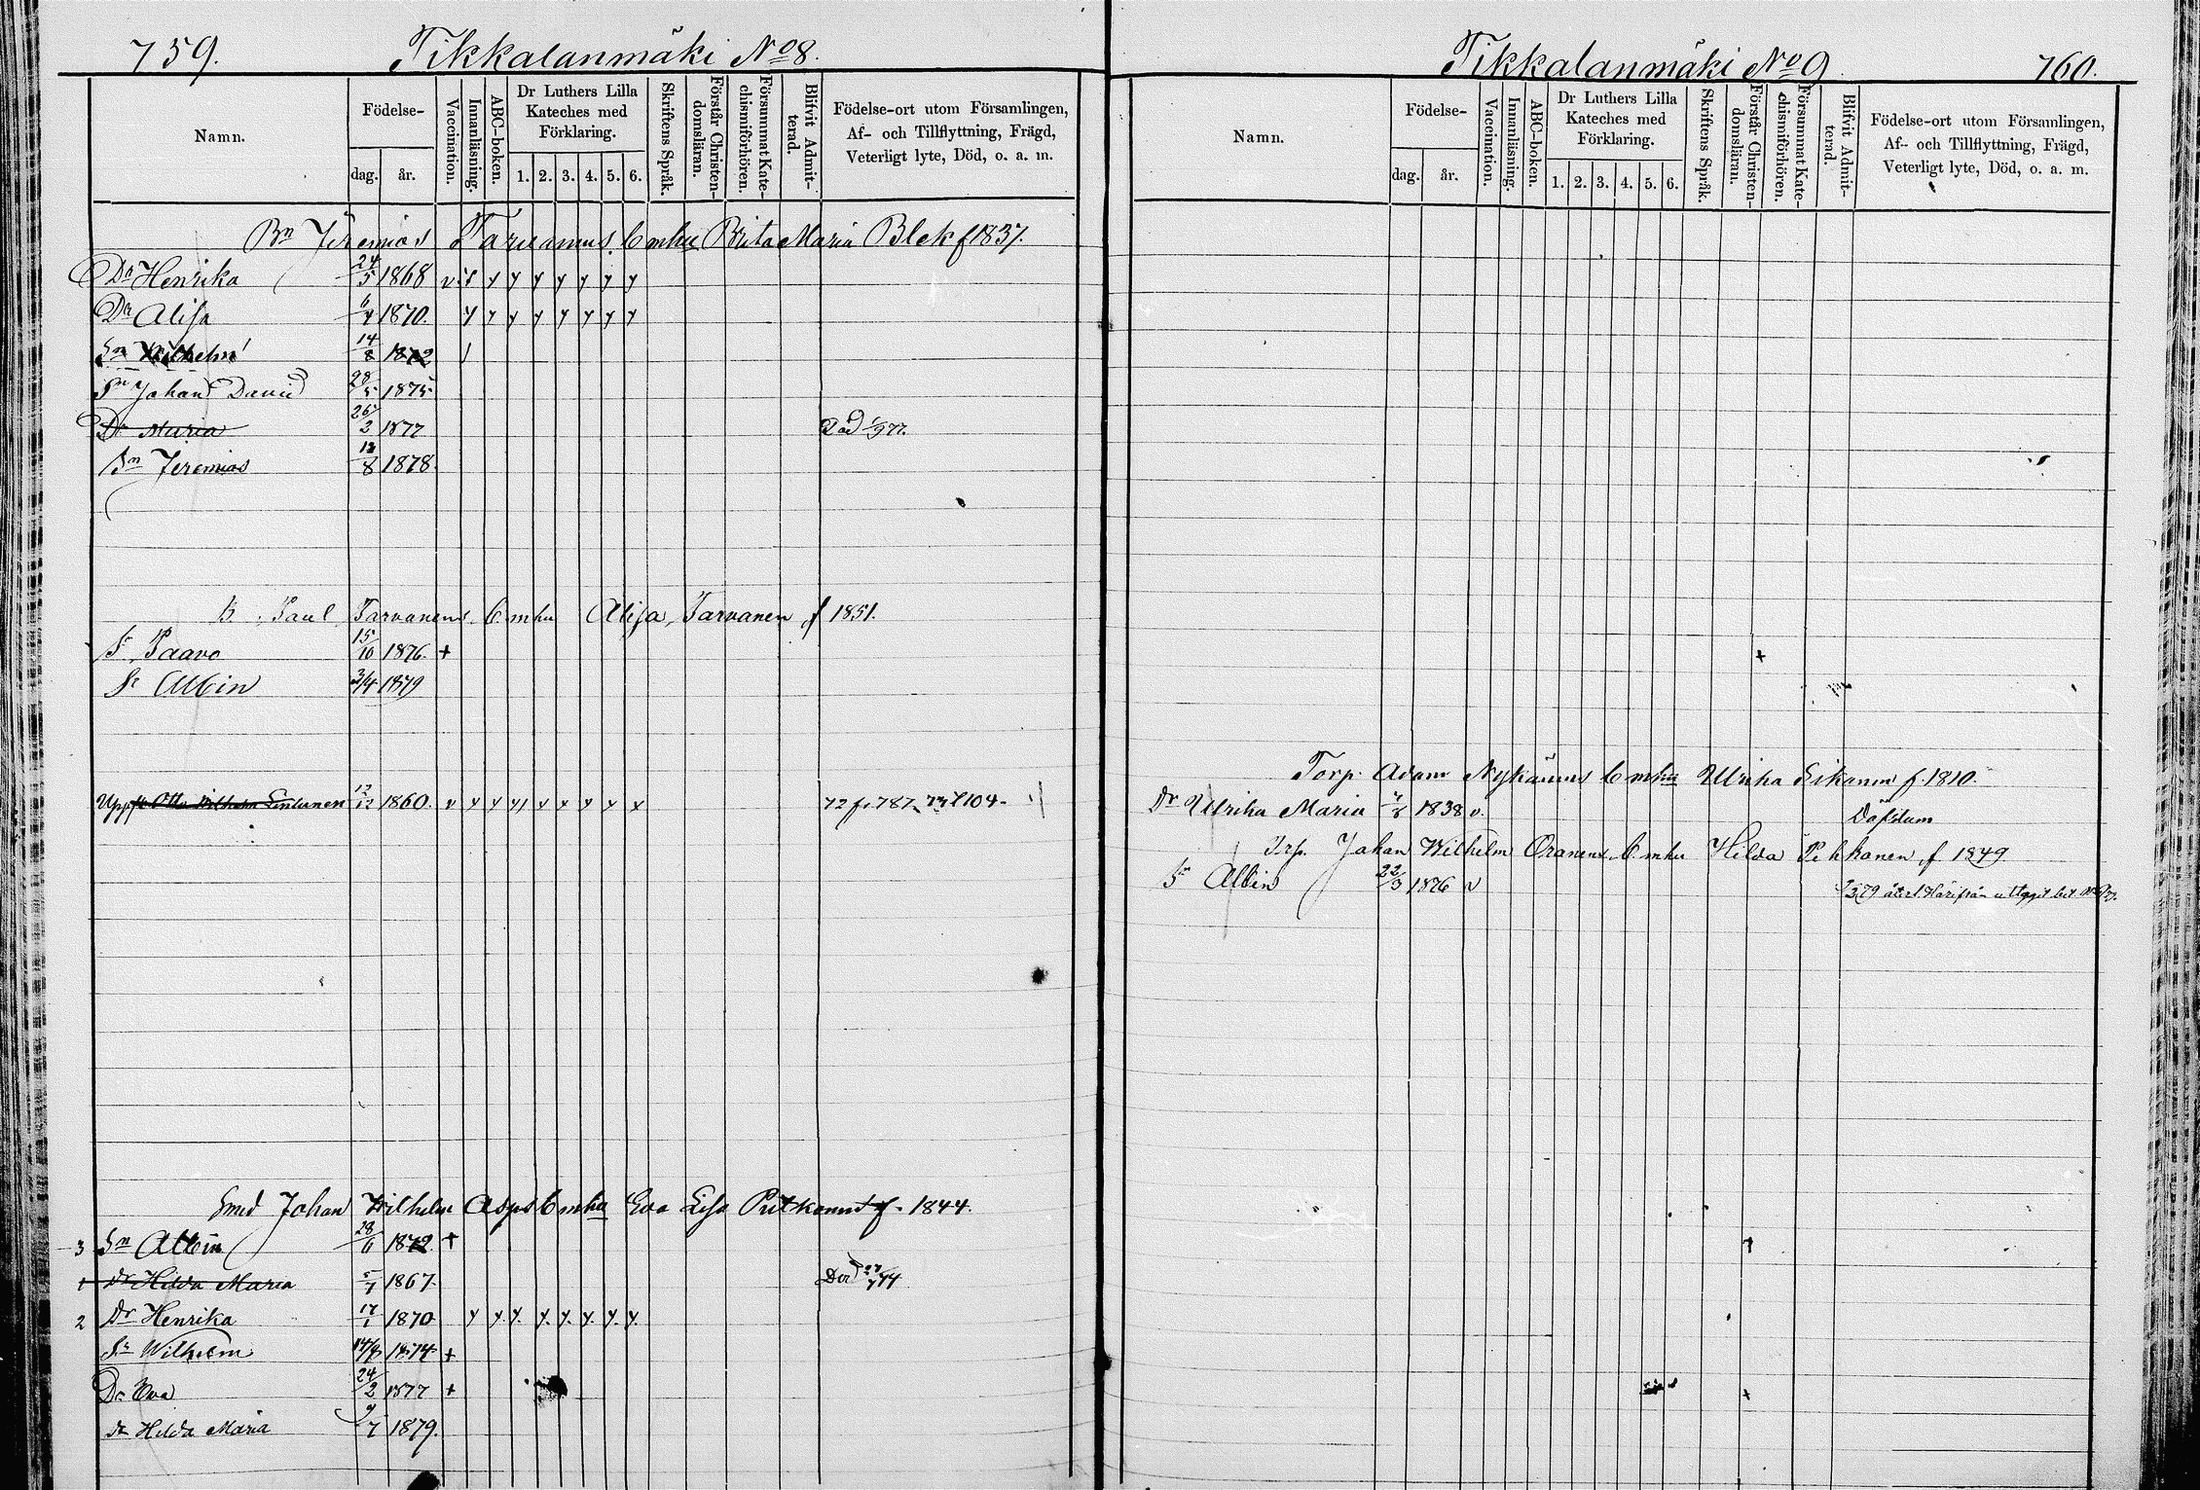 759. Tikkalanmäki No 8.
Namn.
Födelse-
dag. år.
Vaccination.
Innanläsning.
ABC-boken.
Dr Luthers Lilla Kateches med Förklaring.
1. 2. 3. 4. 5. 6.
Skriftens Språk.
Förstår Christendomsläran.
Försummat Katechismiförhören.
Blifvit Admitterad.
Födelse-ort utom Församlingen,
Af- och Tillflyttning, Frägd,
Veterligt lyte, Död, o. a. m.
Bn Jeremias Brita Maria Blek f 1837.
Dr Henrika 24/5 1868 v y y y y y y y y
Dr Alisa 6/4 1870. y y y y y y y y
Sn Wilhelm 14/8 1872 /
Sn Johan David 28/5 1875
Dr Maria 26/2 1877 Död 1/9 77.
Sn Jeremias 13/8 1878.
B. Paul Tarvanens Alisa Tarvanen f 1851.
Sn Paavo 15/10 1876. +
Sn Albin 3/4 1879
Uppf. Otto Wilhelm 12/12 1860. v y y y y y y x x 72 fr 787,
Smed Johan Wilhelm Asps Eva Lisa f. 1844.
3 Sn Albin 28/6 1872. +
1 dr Hilda Maria 5/7 1867.
2 Dr Henrika 17/1 1870 y y. y. y. y. y. y. y.
Sn Wilhelm 14/8 1874 +
Dr Eva 24/2 1877 +
dr Hilda Maria 9/7 1879.
Tikkalanmäki No 9 760.
Namn.
Födelse-
dag. år.
Vaccination.
Innanläsning.
ABC-boken.
Dr Luthers Lilla Kateches med Förklaring.
1. 2. 3. 4. 5. 6.
Skriftens Språk.
Förstår Christendomsläran.
Försummat Katechismiförhören.
Blifvit Admitterad.
Födelse-ort utom Församlingen,
Af- och Tillflyttning, Frägd,
Veterligt lyte, Död, o. a. m.
Torp. Adam Ulrika f. 1810.
Dr Ulrika Maria 1838 v. Döfstum
Trp. Johan Wilhelm Oranens Hilda Pekkanen f. 1849
Sn Albin 22/3 1876 v